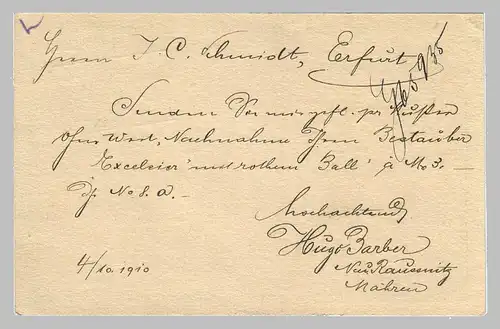 Herrn J. C. Schmidt, Erfurt
Senden Sie mir gefl. per Muster
ohne Wert, Nachnahme Ihren Bestäuber
"Excelsior" mit rothem Ball à M. 3.—
No 8. a.—
Hochachtend
Hugo Barber
Neu Raussnitz
Mähren
4/10.1910